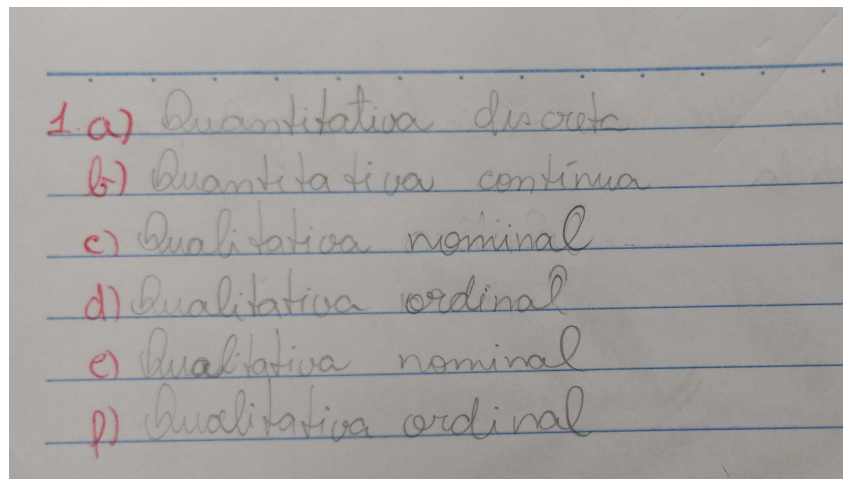 1. a) Quantitativa discreta
b) Quantitativa contínua
c) Qualitativa nominal
d) Qualitativa ordinal
e) Qualitativa nominal
f) Qualitativa ordinal